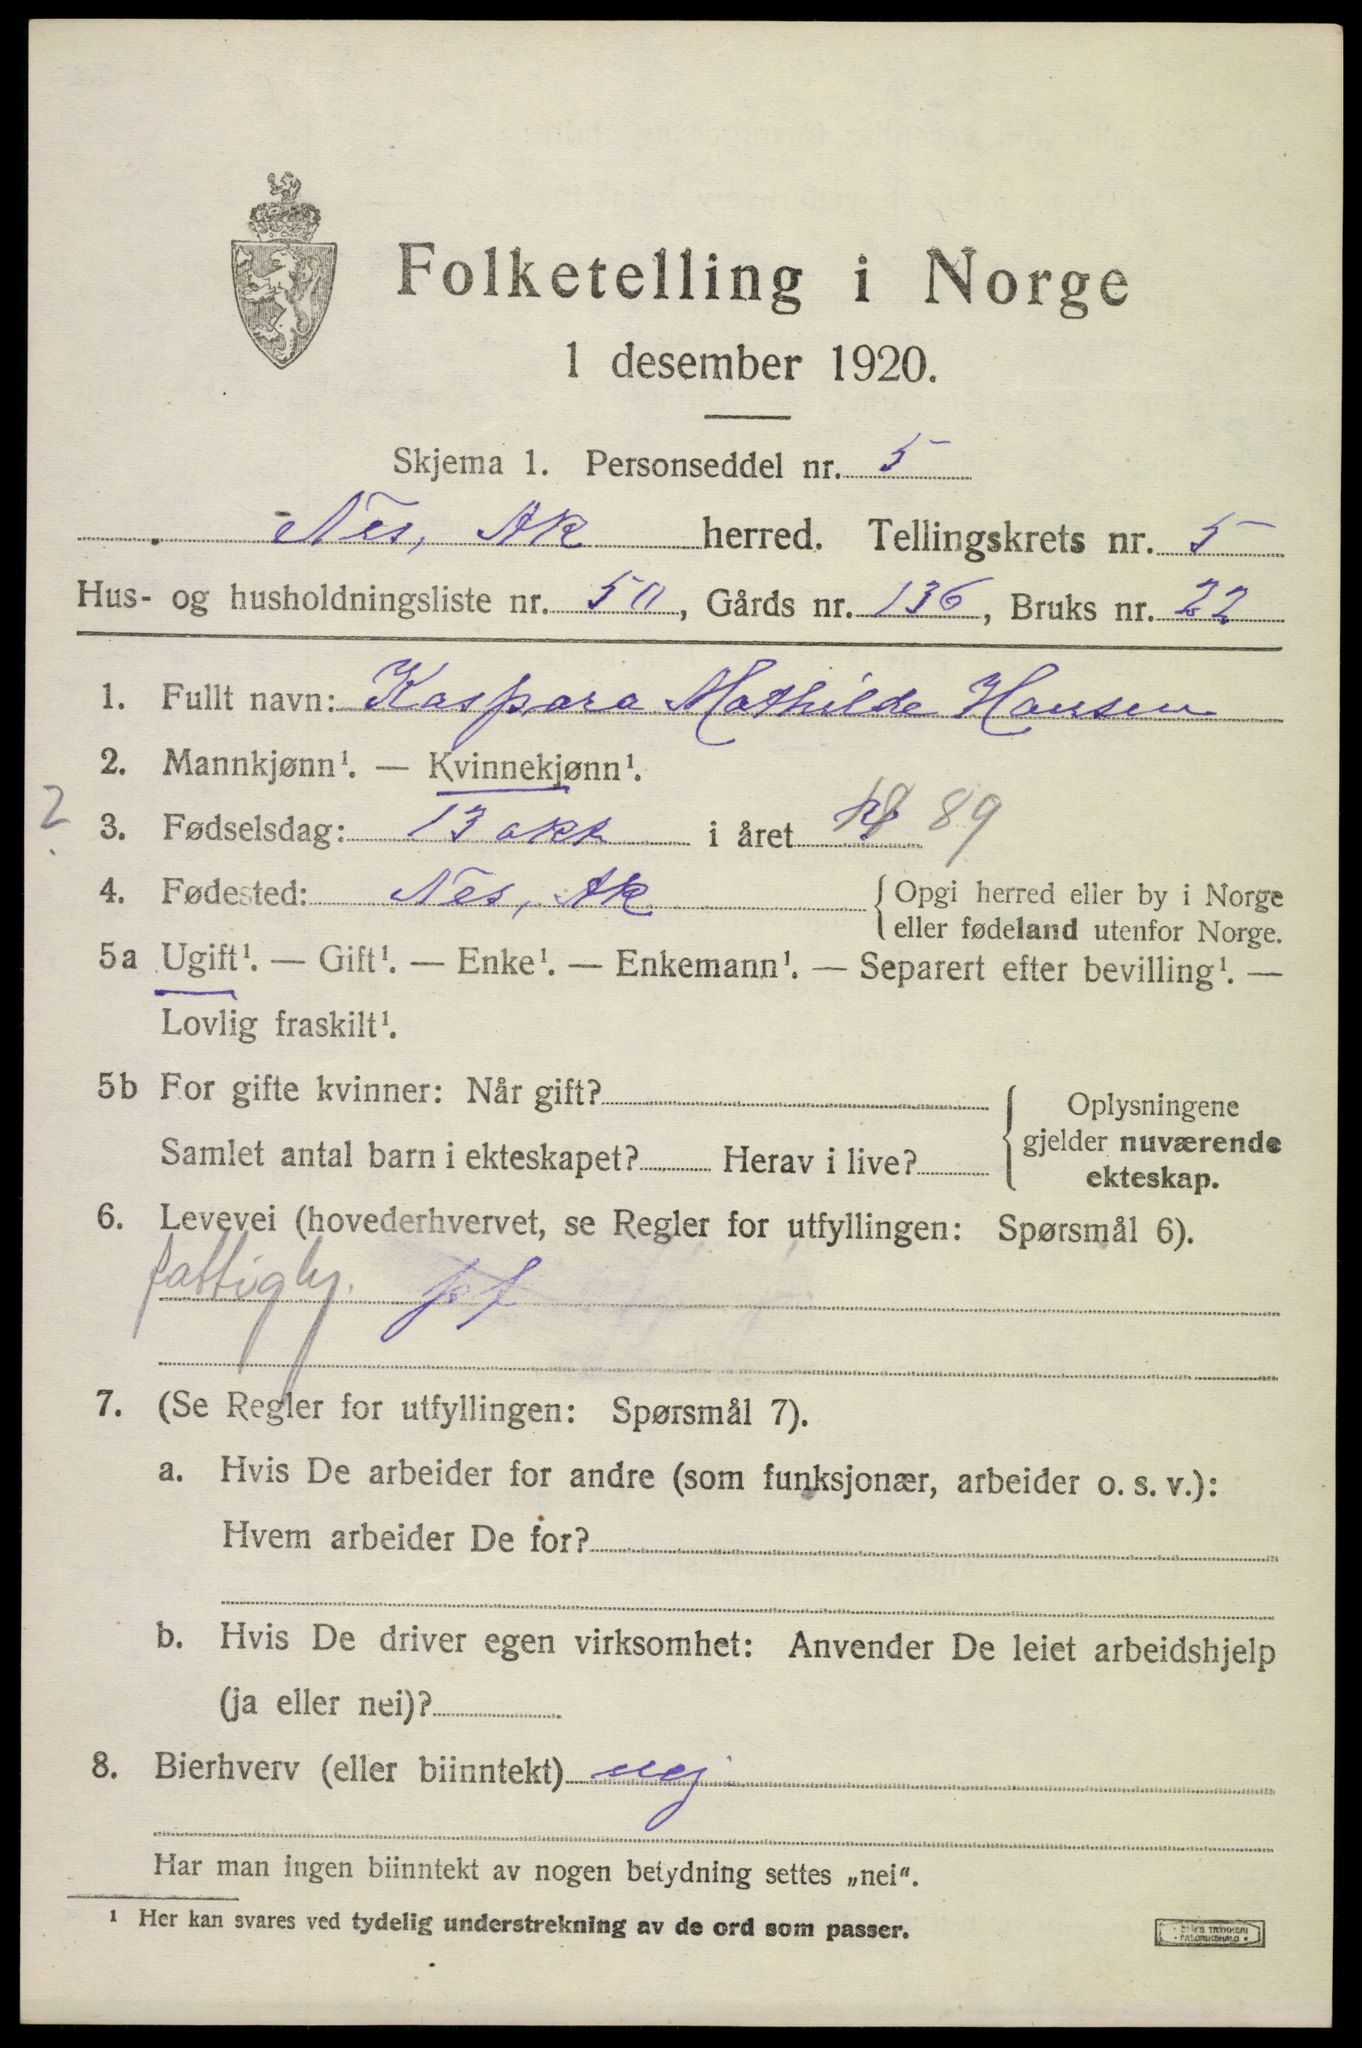 Folketelling i Norge
1 desember 1920.
Skjema 1. Personseddel nr. 5
Nes, Ak herred. Tellingskrets nr. 5
Hus- og husholdningsliste nr. 50, Gårds nr. 136, Bruks nr. 22
1. Fullt navn: Kaspara Mathilde Hansen
2. Mannkjønn¹. — Kvinnekjønn¹.
2
3. Fødselsdag: 13 okt i året 89
4. Fødested: Nes, Ak {Opgi herred eller by i Norge
eller fødeland utenfor Norge.
5a Ugift¹. — Gift¹. — Enke¹. — Enkemann¹. — Separert efter bevilling¹. —
Lovlig fraskilt¹.
5b For gifte kvinner: Når gift? {Oplysningene
gjelder nuværende
ekteskap.
Samlet antal barn i ekteskapet? Herav i live?
6. Levevei (hovederhvervet, se Regler for utfyllingen: Spørsmål 6).
fattigly.
7. (Se Regler for utfyllingen: Spørsmål 7).
a. Hvis De arbeider for andre (som funksjonær, arbeider o. s. v.):
Hvem arbeider De for?
b. Hvis De driver egen virksomhet: Anvender De leiet arbeidshjelp
(ja eller nei)?
8. Bierhverv (eller biinntekt) nej
Har man ingen biinntekt av nogen betydning settes „nei“.
¹ Her kan svares ved tydelig understrekning av de ord som passer.
TRYKKERI
FREDRIKSHALD